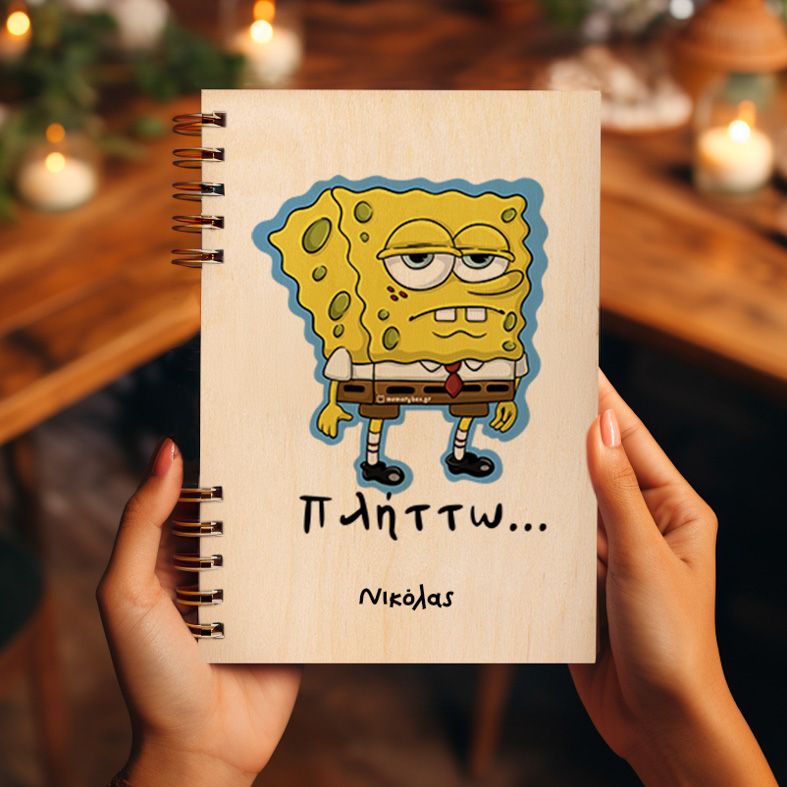 memorybox.gr
Πλήττω...
Νικόλας